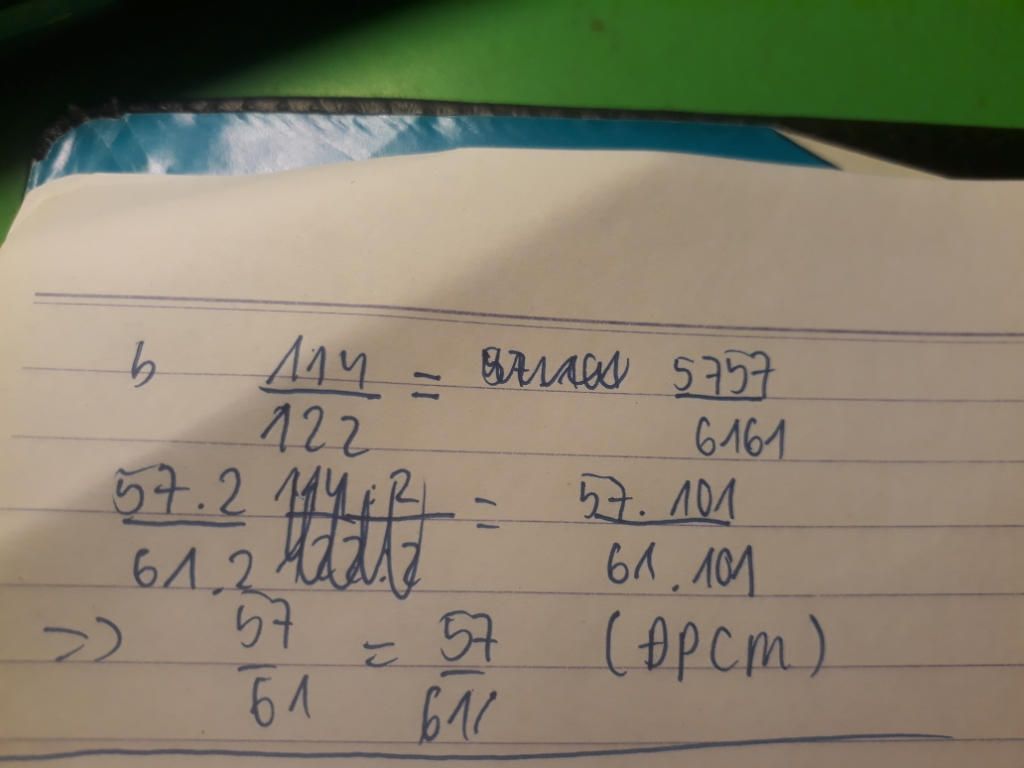 b 114/122 = 5757/6161
57.2/61.2 = 57.101/61.101
=> 57/61 = 57/61 (ĐPCM)